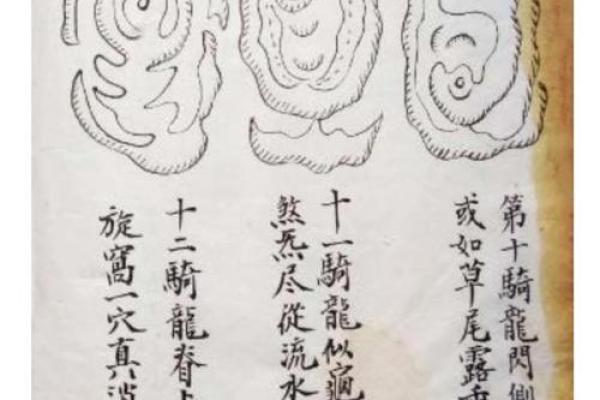 第十騎龍閃側
或如草尾露垂
十一騎龍似龜
煞炁尽從流水
十二騎龍脊上
旋窩一穴真